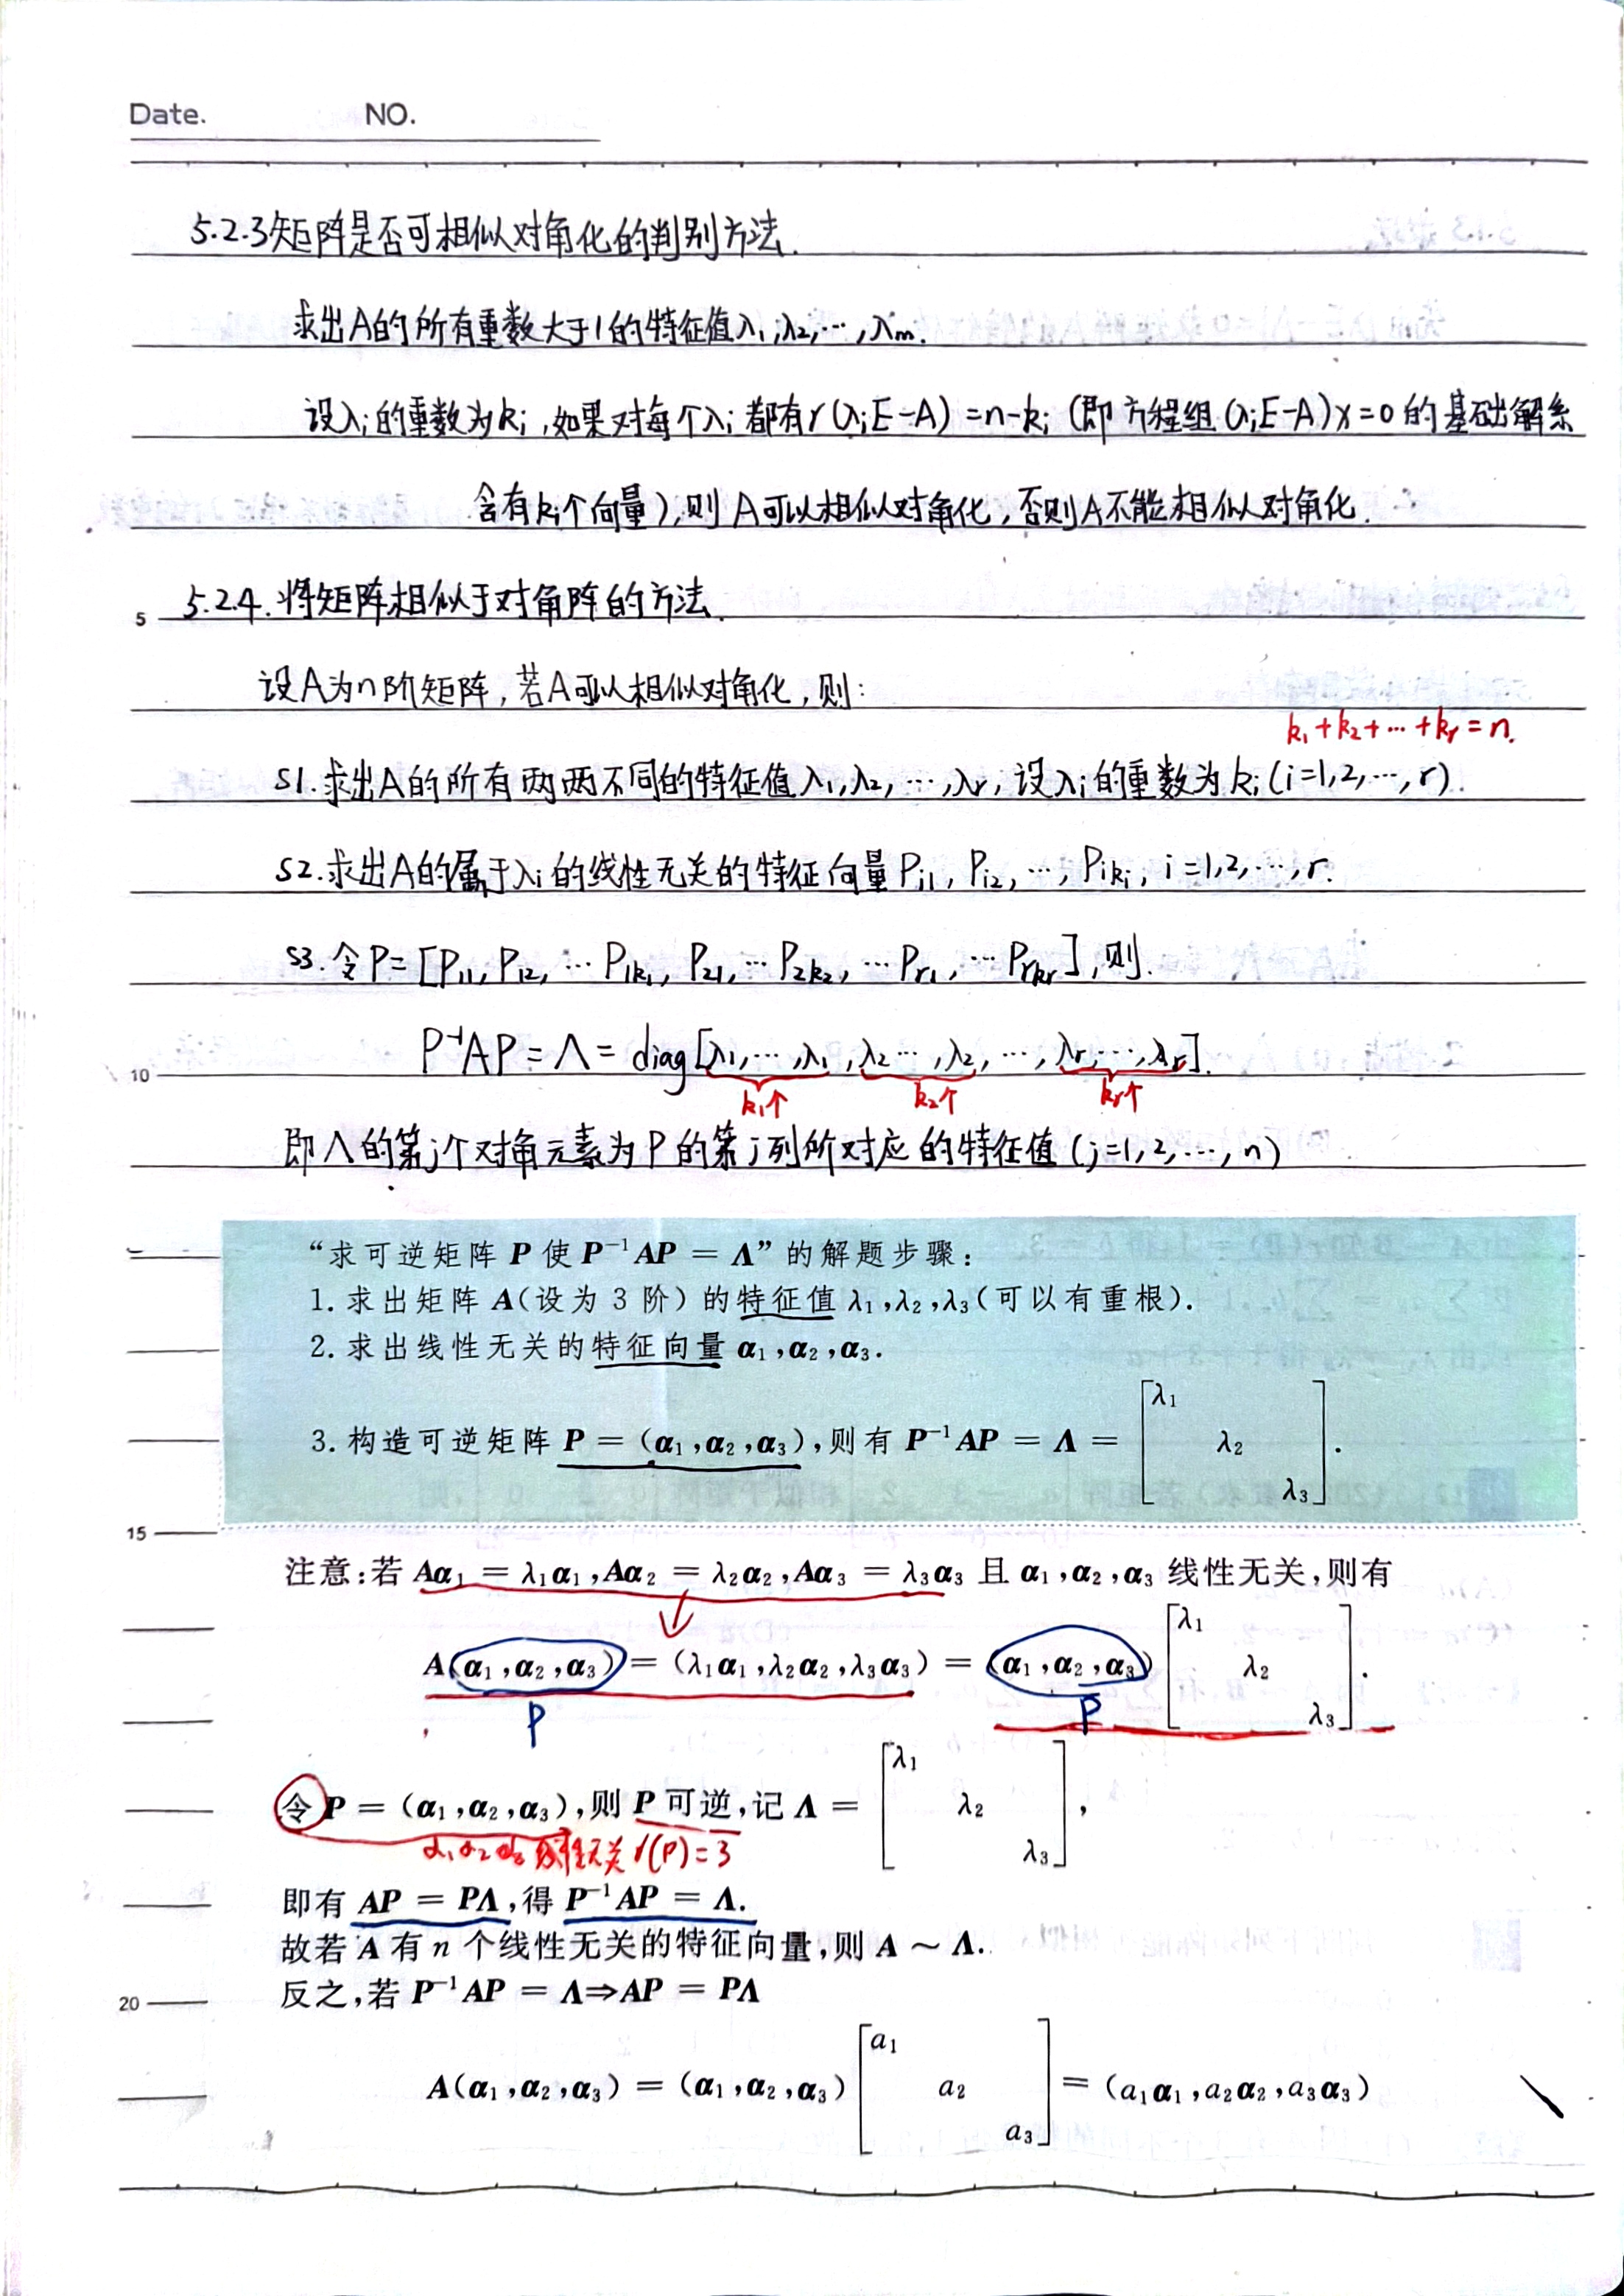 Date. NO.
5.2.3矩阵是否可相似对角化的判别方法.
求出A的所有重数大于1的特征值λ₁,λ₂,…,λₘ.
设λᵢ的重数为kᵢ,如果对每个λᵢ都有r(λᵢE-A)=n-kᵢ(即方程组(λᵢE-A)x=0的基础解系
含有kᵢ个向量),则A可以相似对角化,否则A不能相似对角化.
5 5.2.4.将矩阵相似于对角阵的方法.
设A为n阶矩阵,若A可以相似对角化,则:
k₁+k₂+…+kᵣ=n.
S1.求出A的所有两两不同的特征值λ₁,λ₂,…,λᵣ,设λᵢ的重数为kᵢ(i=1,2,…,r).
S2.求出A的属于λᵢ的线性无关的特征向量Pᵢ₁,Pᵢ₂,…,Pᵢₖᵢ,i=1,2,…,r.
S3.令P=[P₁₁,P₁₂,…P₁ₖ₁,P₂₁,…P₂ₖ₂,…Pᵣ₁,…Pᵣₖᵣ],则.
10 P⁻¹AP=Λ=diag[λ₁,…,λ₁,λ₂…,λ₂,…,λᵣ,…,λᵣ].
k₁个 k₂个 kᵣ个
即Λ的第j个对角元素为P的第j列所对应的特征值(j=1,2,…,n)
“求可逆矩阵 P 使 P⁻¹AP = Λ”的解题步骤:
1. 求出矩阵 A(设为 3 阶)的特征值 λ₁,λ₂,λ₃(可以有重根).
2. 求出线性无关的特征向量 α₁,α₂,α₃.
λ₁
3. 构造可逆矩阵 P = (α₁,α₂,α₃),则有 P⁻¹AP = Λ = [ λ₂ ].
λ₃
15
注意:若 Aα₁ = λ₁α₁,Aα₂ = λ₂α₂,Aα₃ = λ₃α₃ 且 α₁,α₂,α₃ 线性无关,则有
λ₁
A(α₁,α₂,α₃) = (λ₁α₁,λ₂α₂,λ₃α₃) = (α₁,α₂,α₃)[ λ₂ ].
λ₃
P P
λ₁
令 P = (α₁,α₂,α₃),则 P 可逆,记 Λ = [ λ₂ ],
λ₃
α₁α₂α₃线性无关 r(P)=3
即有 AP = PΛ,得 P⁻¹AP = Λ.
故若 A 有 n 个线性无关的特征向量,则 A ~ Λ.
20 反之,若 P⁻¹AP = Λ⇒AP = PΛ
a₁
A(α₁,α₂,α₃) = (α₁,α₂,α₃)[ a₂ ] = (a₁α₁,a₂α₂,a₃α₃)
a₃